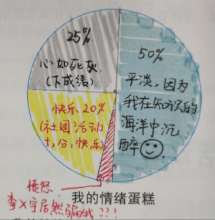 25%
心如死灰
(下成绩)
50%
平淡，因为
我在知识的
海洋中沉
醉
快乐20%
(社团活动
十分快乐)
愤怒
居然骗我???
我的情绪蛋糕